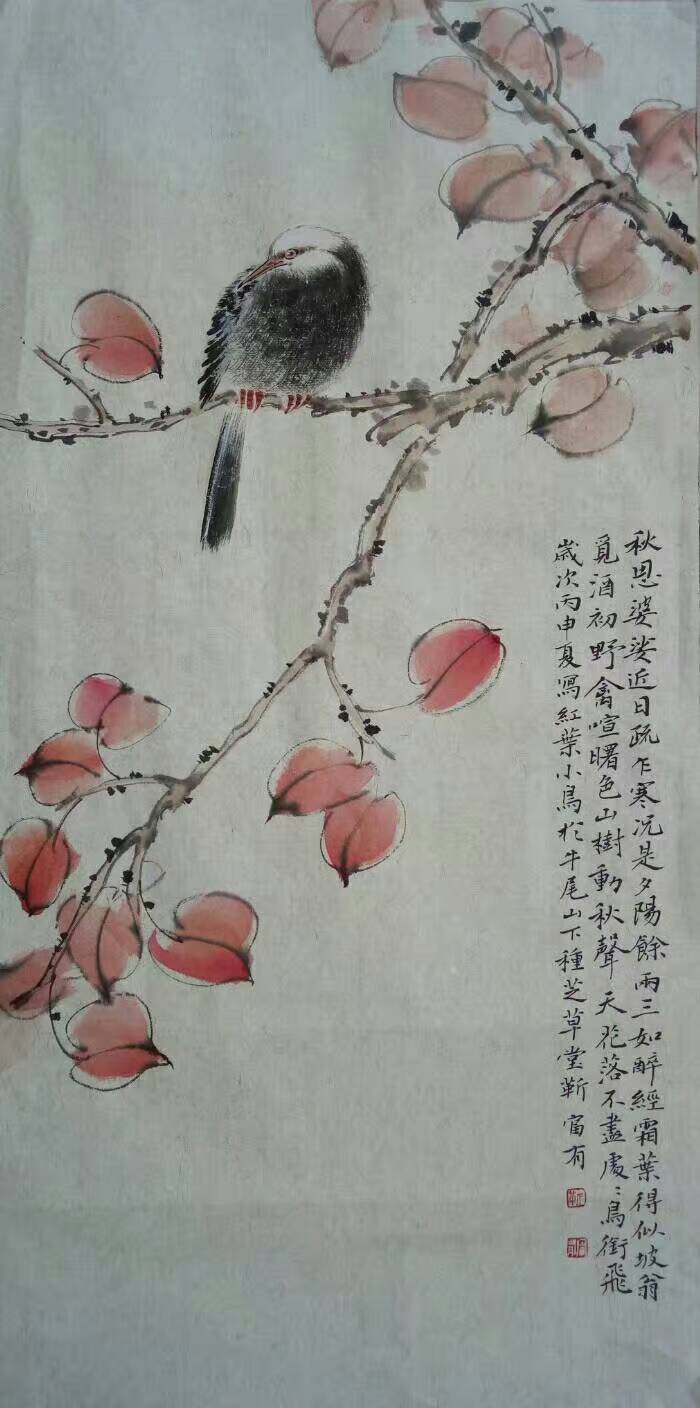 秋思婆娑近日疏乍寒况是夕陽餘兩三如醉經霜葉得似坡翁
覓酒初野禽喧曙色山樹動秋聲天花落不盡處〻鳥銜飛
歲次丙申夏寫紅葉小鳥於牛尾山下種芝草堂靳富有